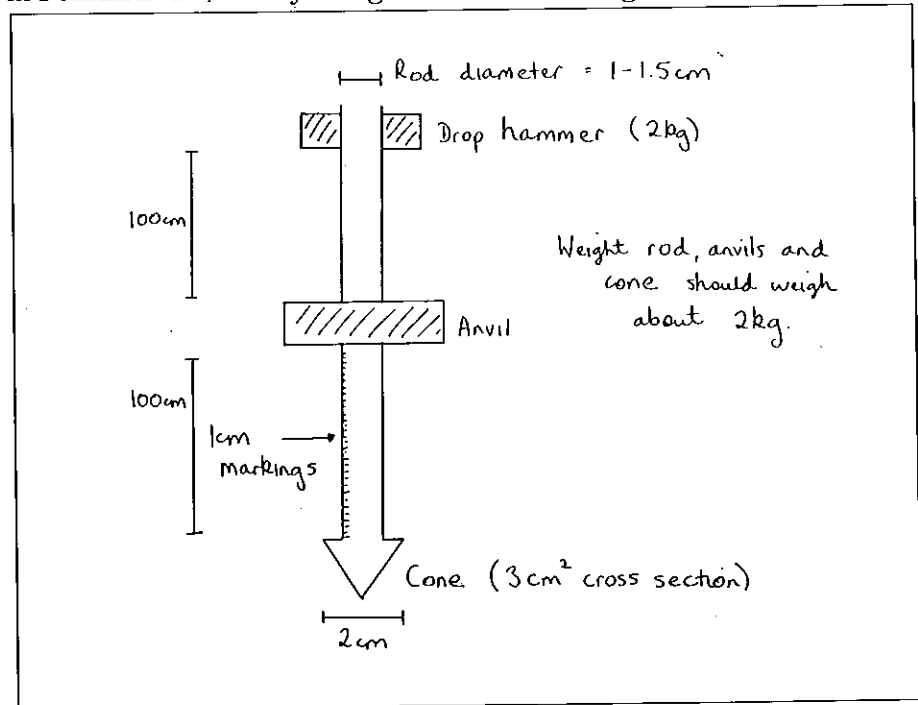 Rod diameter = 1-1.5cm
Drop hammer (2kg)
100cm
Weight rod, anvils and
cone should weigh
about 2kg.
Anvil
100cm
1cm
markings
Cone (3cm² cross section)
2cm